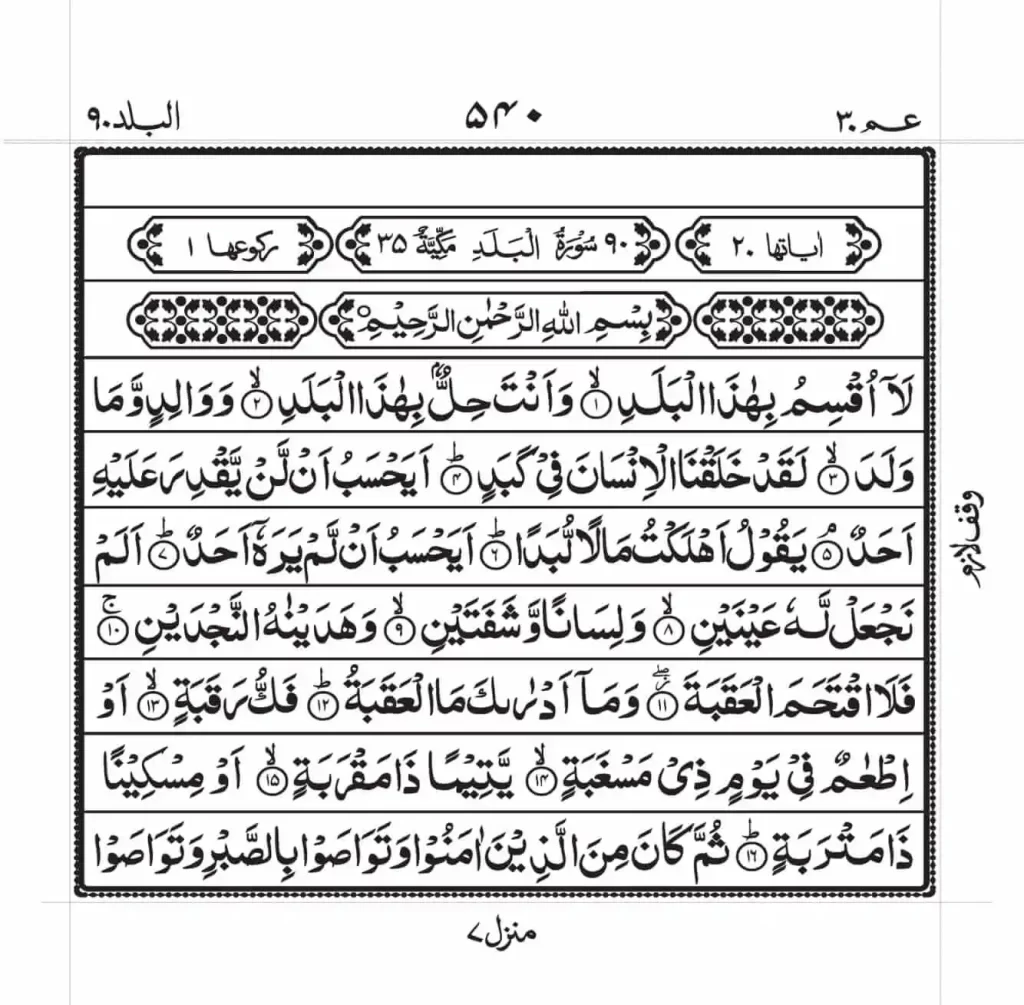 عــم ٣٠ ۵۴۰ البلد ٩٠
اٰیاتها ٢٠ ٩٠ سُوْرَةُ الْبَلَدِ مَكِّيَّةٌ ٣٥ ركوعها ١
بِسْمِ اللّٰهِ الرَّحْمٰنِ الرَّحِيْمِ
لَآ اُقْسِمُ بِهٰذَا الْبَلَدِ ۙ‏﴿١﴾ وَاَنْتَ حِلٌّۢ بِهٰذَا الْبَلَدِ ۙ‏﴿٢﴾ وَوَالِدٍ وَّمَا
وَلَدَ ۙ‏﴿٣﴾ لَقَدْ خَلَقْنَا الْاِنْسَانَ فِيْ كَبَدٍ ؕ‏﴿۴﴾ اَيَحْسَبُ اَنْ لَّنْ يَّقْدِرَ عَلَيْهِ
اَحَدٌ ۘ‏﴿۵﴾ يَقُوْلُ اَهْلَكْتُ مَالًا لُّبَدًا ؕ‏﴿۶﴾ اَيَحْسَبُ اَنْ لَّمْ يَرَهٗۤ اَحَدٌ ؕ‏﴿٧﴾ اَلَمْ
وقف لازم
نَجْعَلْ لَّهٗ عَيْنَيْنِ ۙ‏﴿٨﴾ وَلِسَانًا وَّشَفَتَيْنِ ۙ‏﴿٩﴾ وَهَدَيْنٰهُ النَّجْدَيْنِ ۚ‏﴿١٠﴾
فَلَا اقْتَحَمَ الْعَقَبَةَ ۖ‏﴿١١﴾ وَمَاۤ اَدْرٰىكَ مَا الْعَقَبَةُ ؕ‏﴿١٢﴾ فَكُّ رَقَبَةٍ ۙ‏﴿١٣﴾ اَوْ
اِطْعٰمٌ فِيْ يَوْمٍ ذِيْ مَسْغَبَةٍ ۙ‏﴿١۴﴾ يَّتِيْمًا ذَا مَقْرَبَةٍ ۙ‏﴿١۵﴾ اَوْ مِسْكِيْنًا
ذَا مَتْرَبَةٍ ؕ‏﴿١۶﴾ ثُمَّ كَانَ مِنَ الَّذِيْنَ اٰمَنُوْا وَتَوَاصَوْا بِالصَّبْرِ وَتَوَاصَوْا
منزل ٧